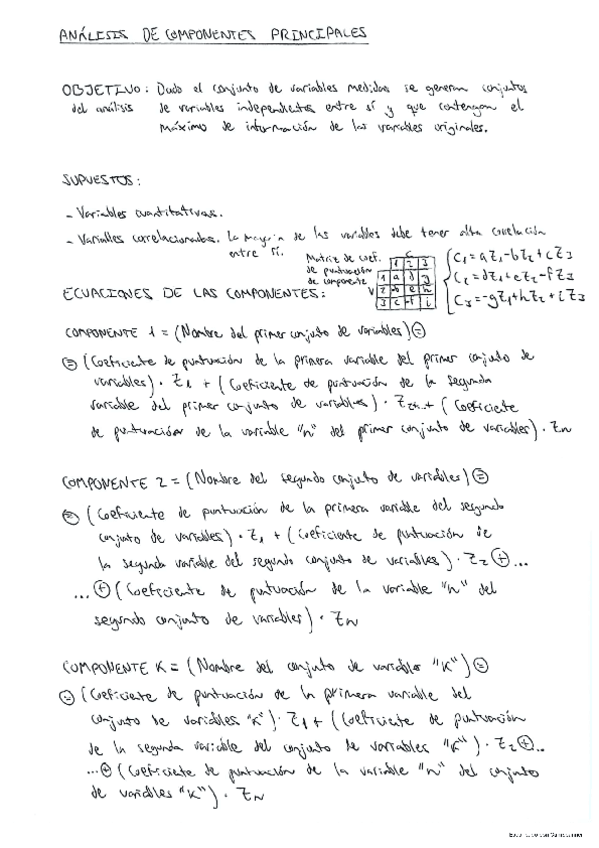 ANÁLISIS DE COMPONENTES PRINCIPALES
OBJETIVO: Dado el conjunto de variables medidas se generan conjuntos
del análisis de variables independientes entre sí y que contengan el
máximo de información de las variables originales.
SUPUESTOS:
- Variables cuantitativas.
- Variables correlacionadas. La mayoría de las variables debe tener alta correlación
entre sí.
Matriz de coef. de puntuación de componente
C
1 2 3
V
1 a d g
2 -b e h
3 c -f i
C1 = aZ1 - bZ2 + cZ3
C2 = dZ1 + eZ2 - fZ3
C3 = -gZ1 + hZ2 + iZ3
ECUACIONES DE LAS COMPONENTES:
COMPONENTE 1 = (Nombre del primer conjunto de variables) =
= (Coeficiente de puntuación de la primera variable del primer conjunto de
variables) · Z1 + (Coeficiente de puntuación de la segunda
variable del primer conjunto de variables) · Z2 + (Coeficiente
de puntuación de la variable "n" del primer conjunto de variables) · ZN
COMPONENTE 2 = (Nombre del segundo conjunto de variables) =
= (Coeficiente de puntuación de la primera variable del segundo
conjunto de variables) · Z1 + (Coeficiente de puntuación de
la segunda variable del segundo conjunto de variables) · Z2 + ...
... + (Coeficiente de puntuación de la variable "n" del
segundo conjunto de variables) · ZN
COMPONENTE K = (Nombre del conjunto de variables "K") =
= (Coeficiente de puntuación de la primera variable del
conjunto de variables "K") · Z1 + (Coeficiente de puntuación
de la segunda variable del conjunto de variables "K") · Z2 + ...
... + (Coeficiente de puntuación de la variable "n" del conjunto
de variables "K") · ZN